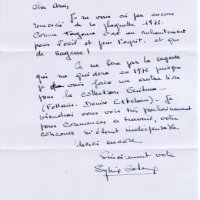 Cher Ami,
Je ne vous ai pas encore
remercié de la plaquette 1976.
Comme toujours c'est un enchantement
pour l'œil et pour l'esprit, et que
de sagesse !
Ce ne sera pas la plaquette
qui me qui sera en 1976 puisque
je vous faire un autre livre
pour la collection Écritures
(Follain - Denise Esteban) - Je
viendrai vous voir très prochainement
pour commencer ce travail, votre
concours m'étant indispensable.
Merci encore
Sincèrement votre